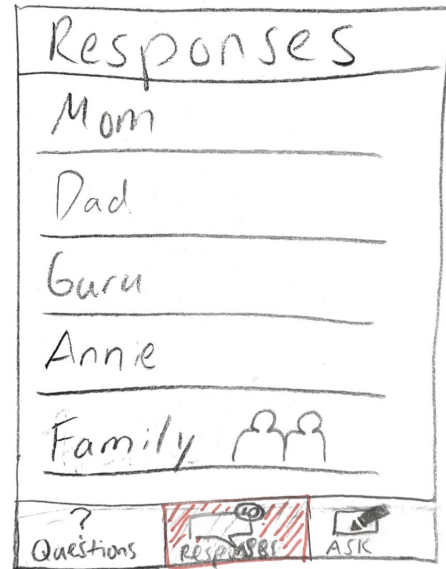 Responses
Mom
Dad
Guru
Annie
Family
?
Questions
Responses
ASK